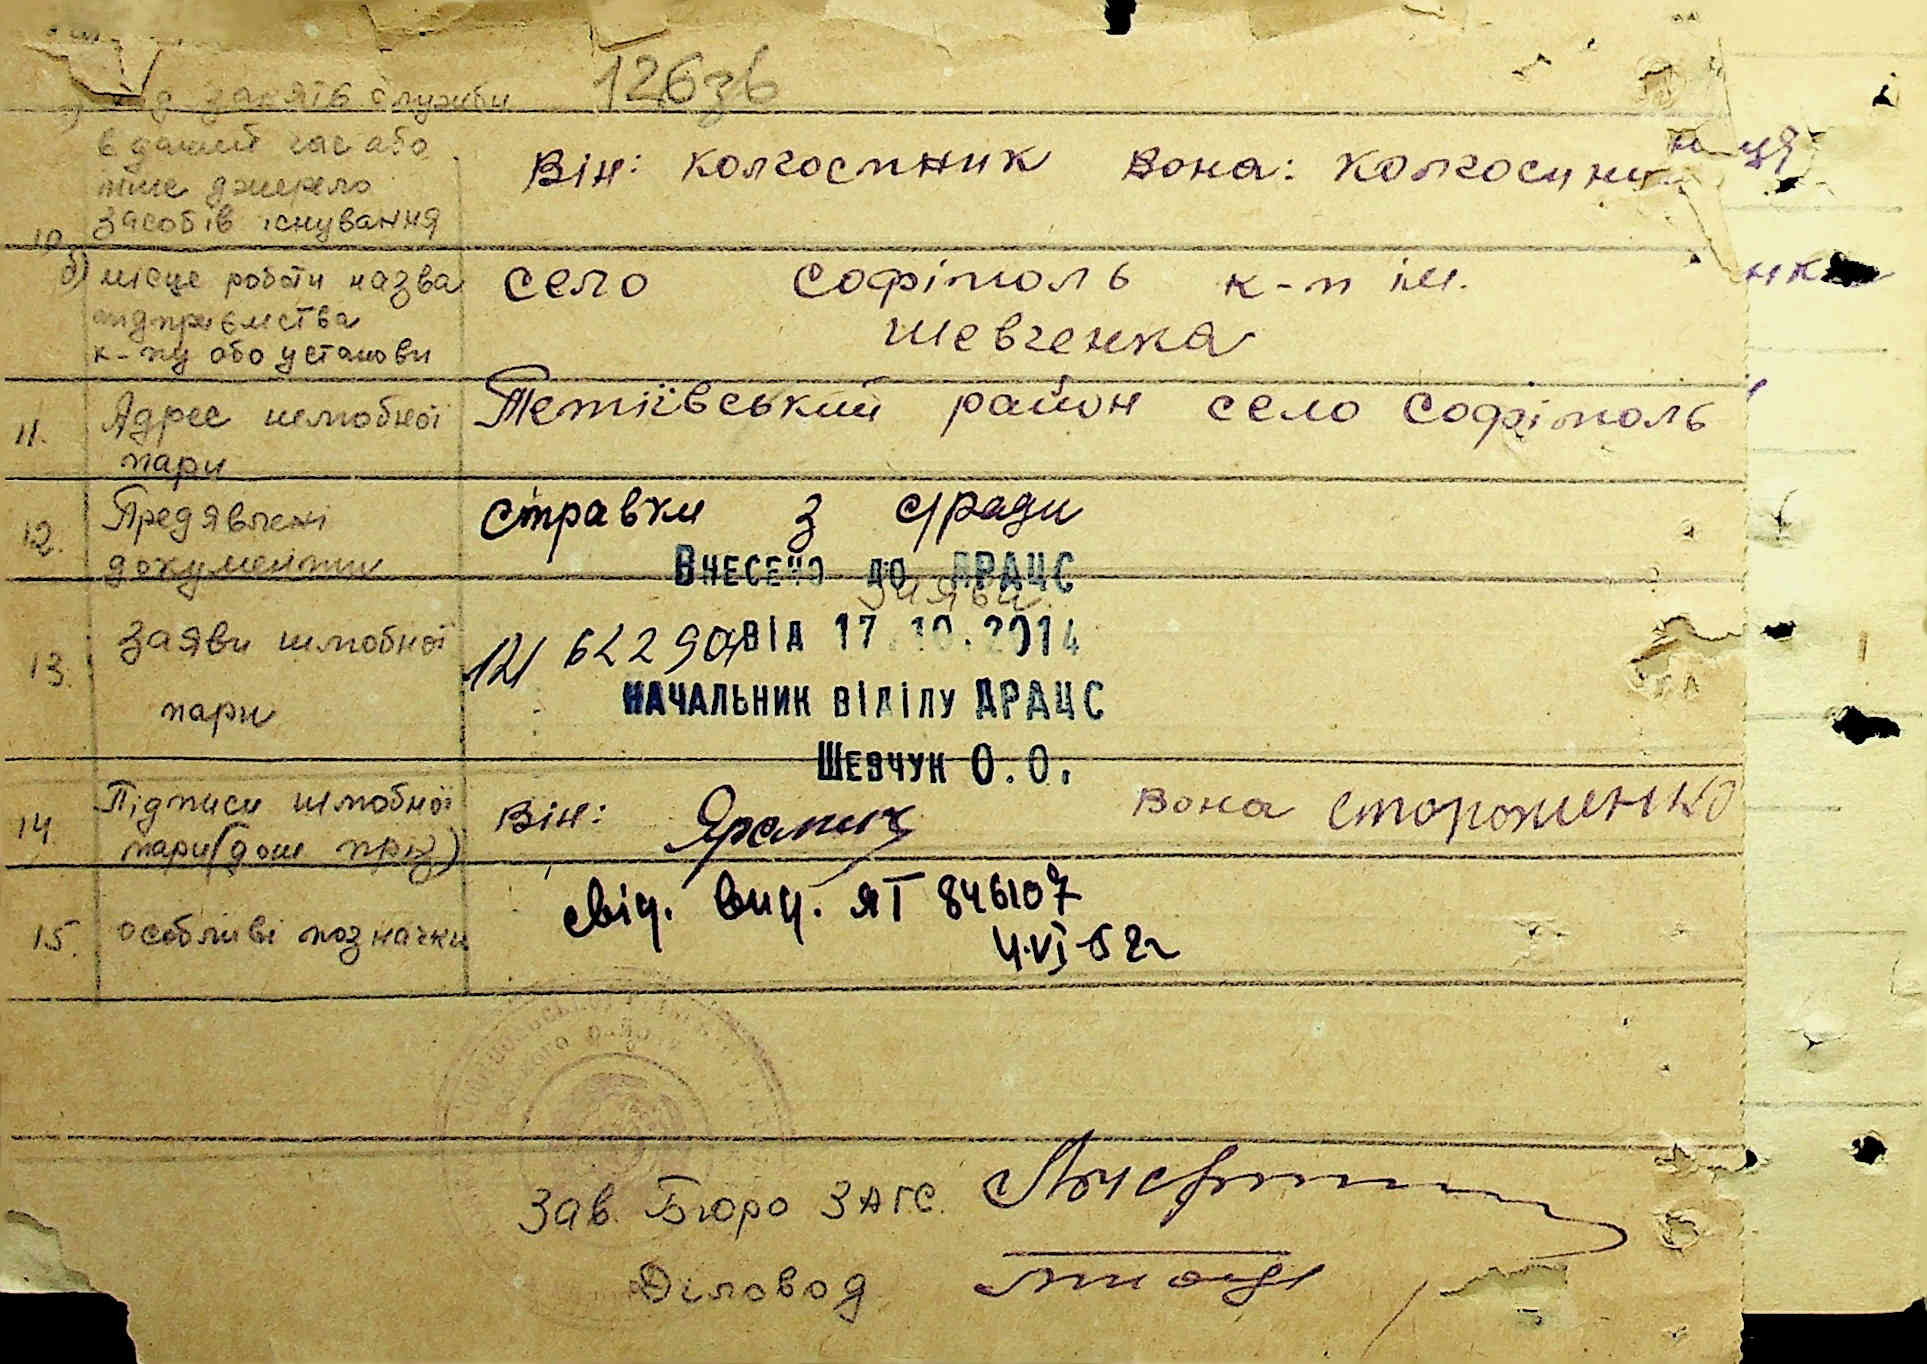 126зв
а) рід занятів служби
в даний час або
інше джерело
засобів існування
Він: колгоспник Вона: колгоспниця
10
б) місце роботи назва
підприємства
к-пу або установи
село Софіполь к-п ім.
Шевченка
11. Адрес шлюбної
пари
Тетіївський район село Софіполь
12. Предявлені
документи
Справки з с/ради
Внесено до ДРАЦС
заяви
13. Заяви шлюбної
пари
від 17.10.2014
Начальник відділу ДРАЦС
Шевчук О.О.
14. Підписи шлюбної
пари (дош. пріз)
Він: Яремич Вона Стороженко
15. особливі позначки
свід. вид. ЯТ 846107
4.VI-52г
Зав. Бюро ЗАГС.
Діловод